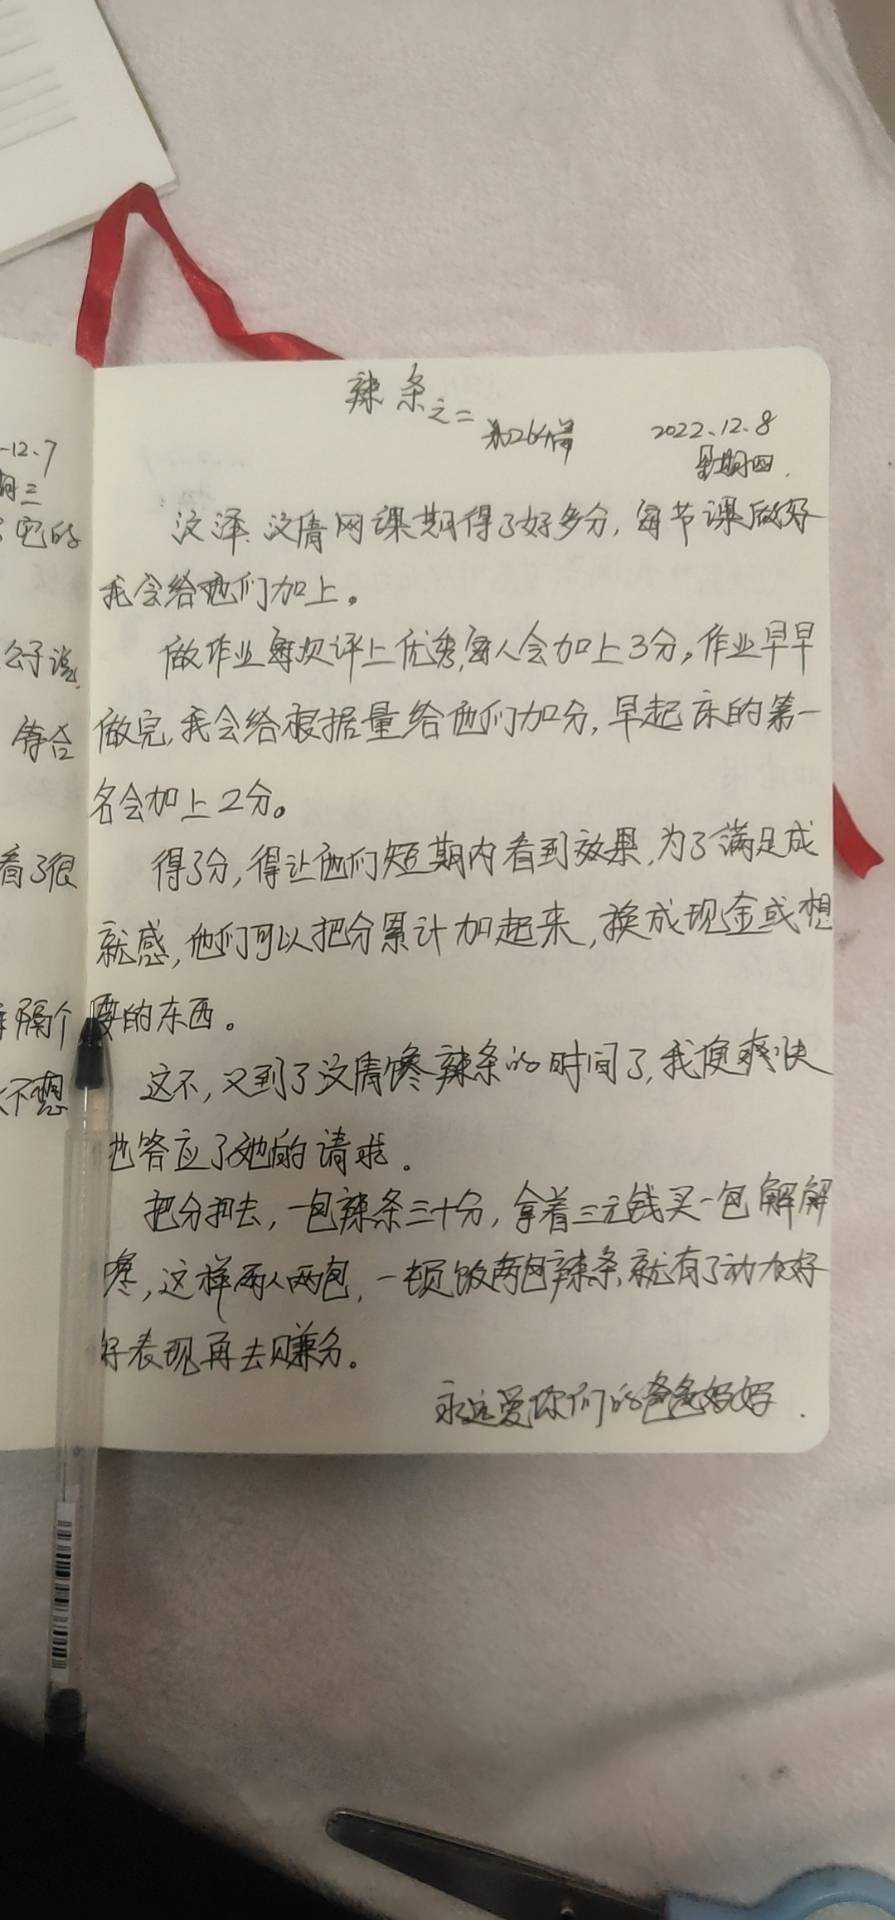 辣条之二
第26篇
2022.12.8
星期四.
汶泽.汶倩网课期得了好多分,每节课做好
我会给他们加上。
做作业每次评上优秀,每人会加上3分。作业早早
做完,我会给根据量给他们加分,早起床的第一
名会加上2分。
得了分,得让他们短期内看到效果,为了满足成
就感,他们可以把分累计加起来,换成现金或想
要的东西。
这不,又到了汶倩馋辣条的时间了,我便爽快
地答应了她的请求。
把分扣去,一包辣条三十分,拿着三元钱买一包解解
馋,这样两人两包,一顿饭两包辣条,就有了动力好
好表现再去赚分。
永远爱你们的爸爸妈妈.
-12.7
期三
它的
公子说
符合
看了很
隔个
不想